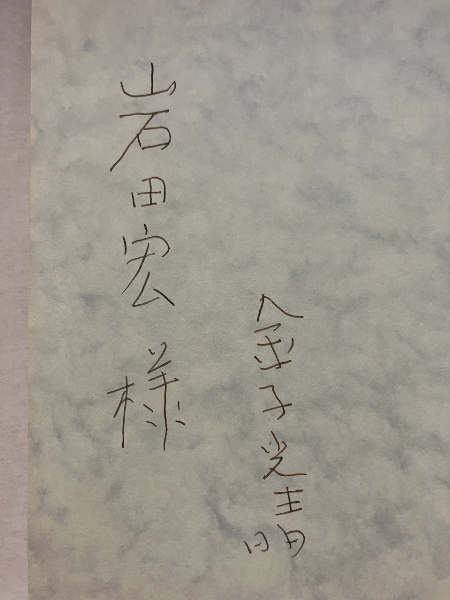 岩田宏様
金子光晴